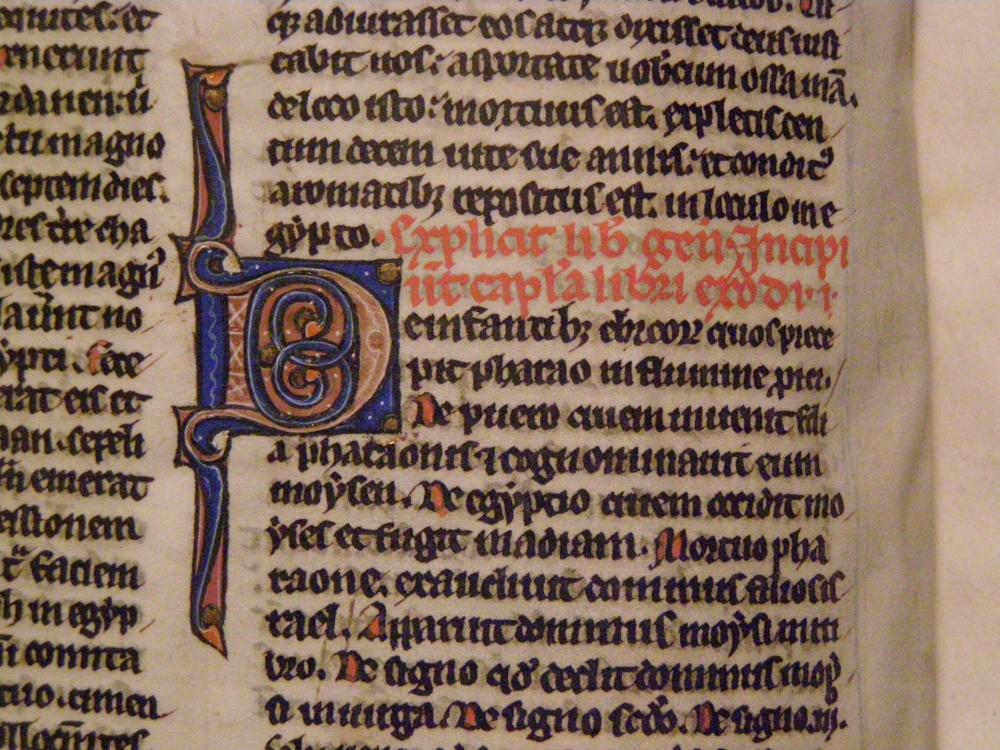 onuites. et
enerunt
rdanen: u
ctu magno
septem dies.
res t̄re cha
iste magn̄
laūnt no
ẏpti. fece
erat eis et
aan. sepeli
emerat
essionem
faciem
h in egyp
cōmta
q; adiurasset eos atq; dixisset deus uisi
tabit uos: asportate uobcum ossa mā.
de loco isto: mortuus est. expletis cen
tum decem uite sue annis: et condit᷒
aromatib; repositus est. in loculo in e
gẏpto. Explicit lib̄ gen̄. Incipi
ūt capl̄a libri exodi. i.
De infantib; ebreoꝝ quos prece
pit pharao in flumine pici.
De puero quem inuenit fili
a pharaonis ⁊ cognominauit eum
moẏsen. De egẏptio quem occidit mo
ẏses et fugit in adiam. Mortuo pha
raone. exaudiuit dominus filios is
rael. Apparuit dominus moẏsi in ru
bro. De signo qd̄ dedit dominus moẏ
si in uirga. De signo scd̄o. De signo .iii.